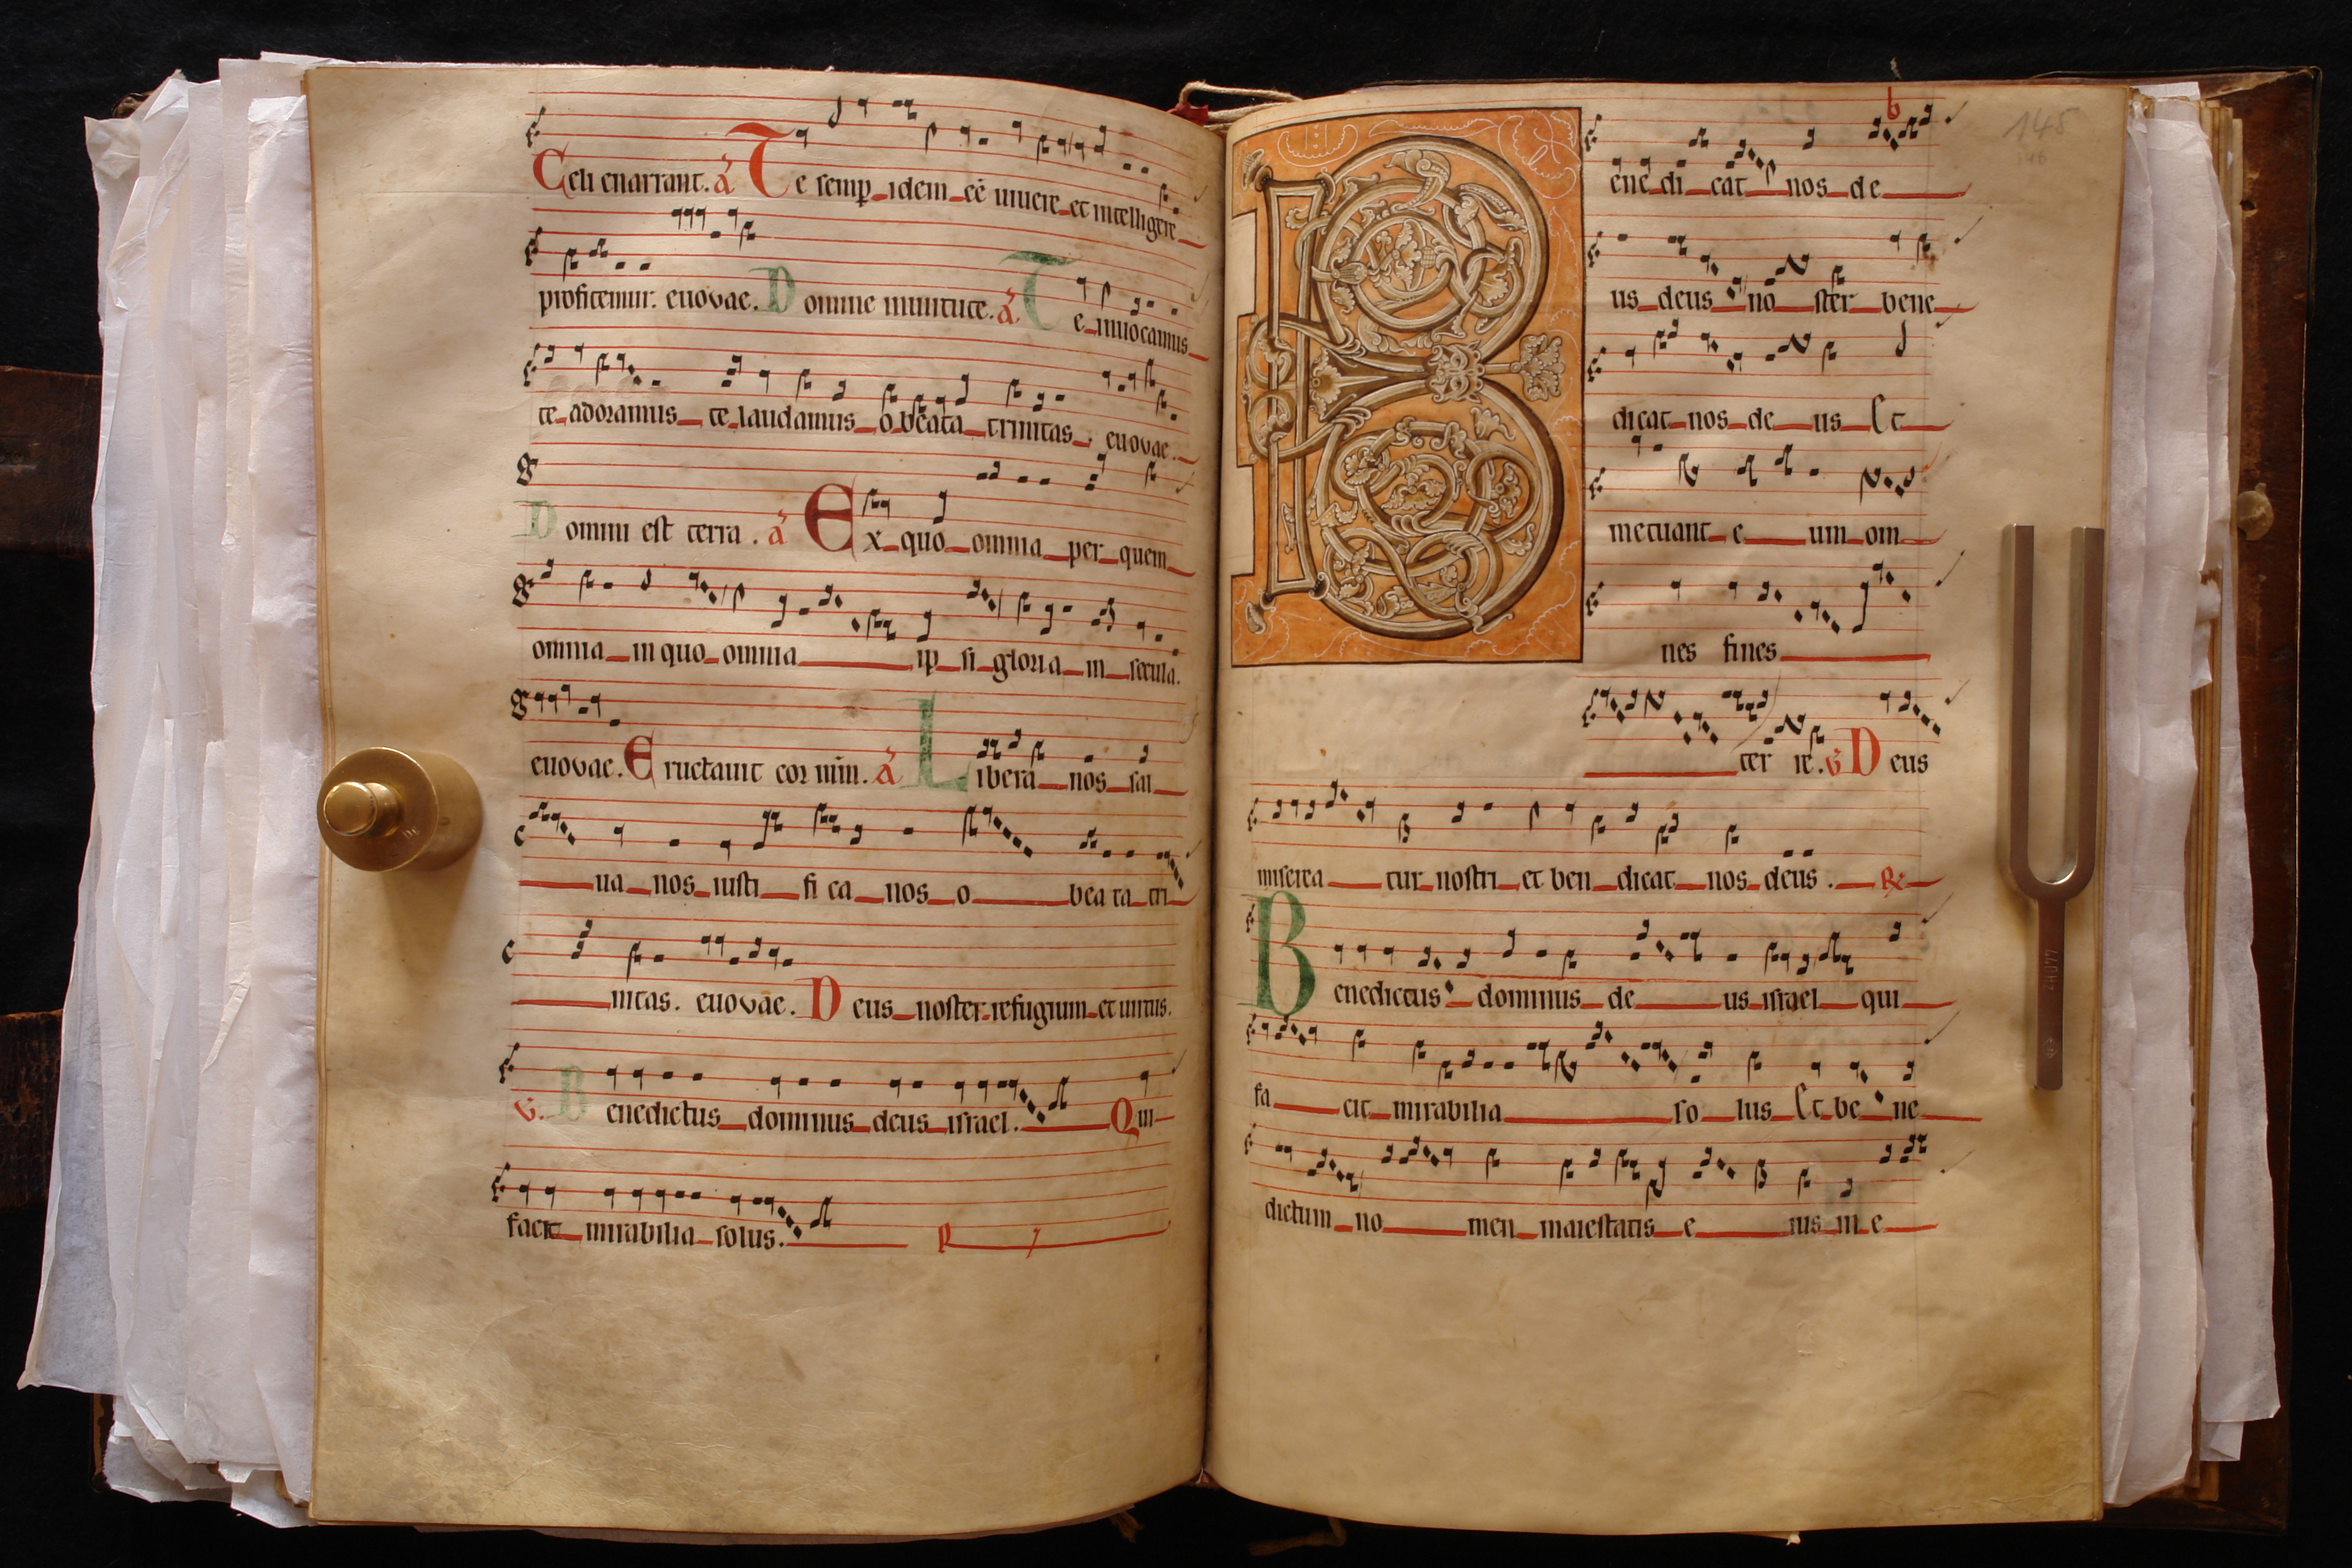 Celi enarrant. a Te semp idem eē uiuere et intelligere
profitemur. euovae. Domine in uirtute. a Te inuocamus
te adoramus te laudamus o beata trinitas. euovae.
Domini est terra. a Ex quo omnia per quem
omnia in quo omnia ip si gloria in secula.
euovae. Eructauit cor mm. a Libera nos sal
ua nos iusti fi ca nos o bea ta tri
nitas. euovae. Deus noster refugium et uirtus.
V. Benedictus dominus deus israel. Qui
facit mirabilia solus. R
Bene di cat nos de
us deus no ster bene
dicat nos de us Et
metuant e um om
nes fines
ter re. V Deus
miserea tur nostri et ben dicat nos deus. R
Benedictus dominus de us israel qui
fa cit mirabilia so lus Et be ne
dictum no men maiestatis e ius in e
145
146
b